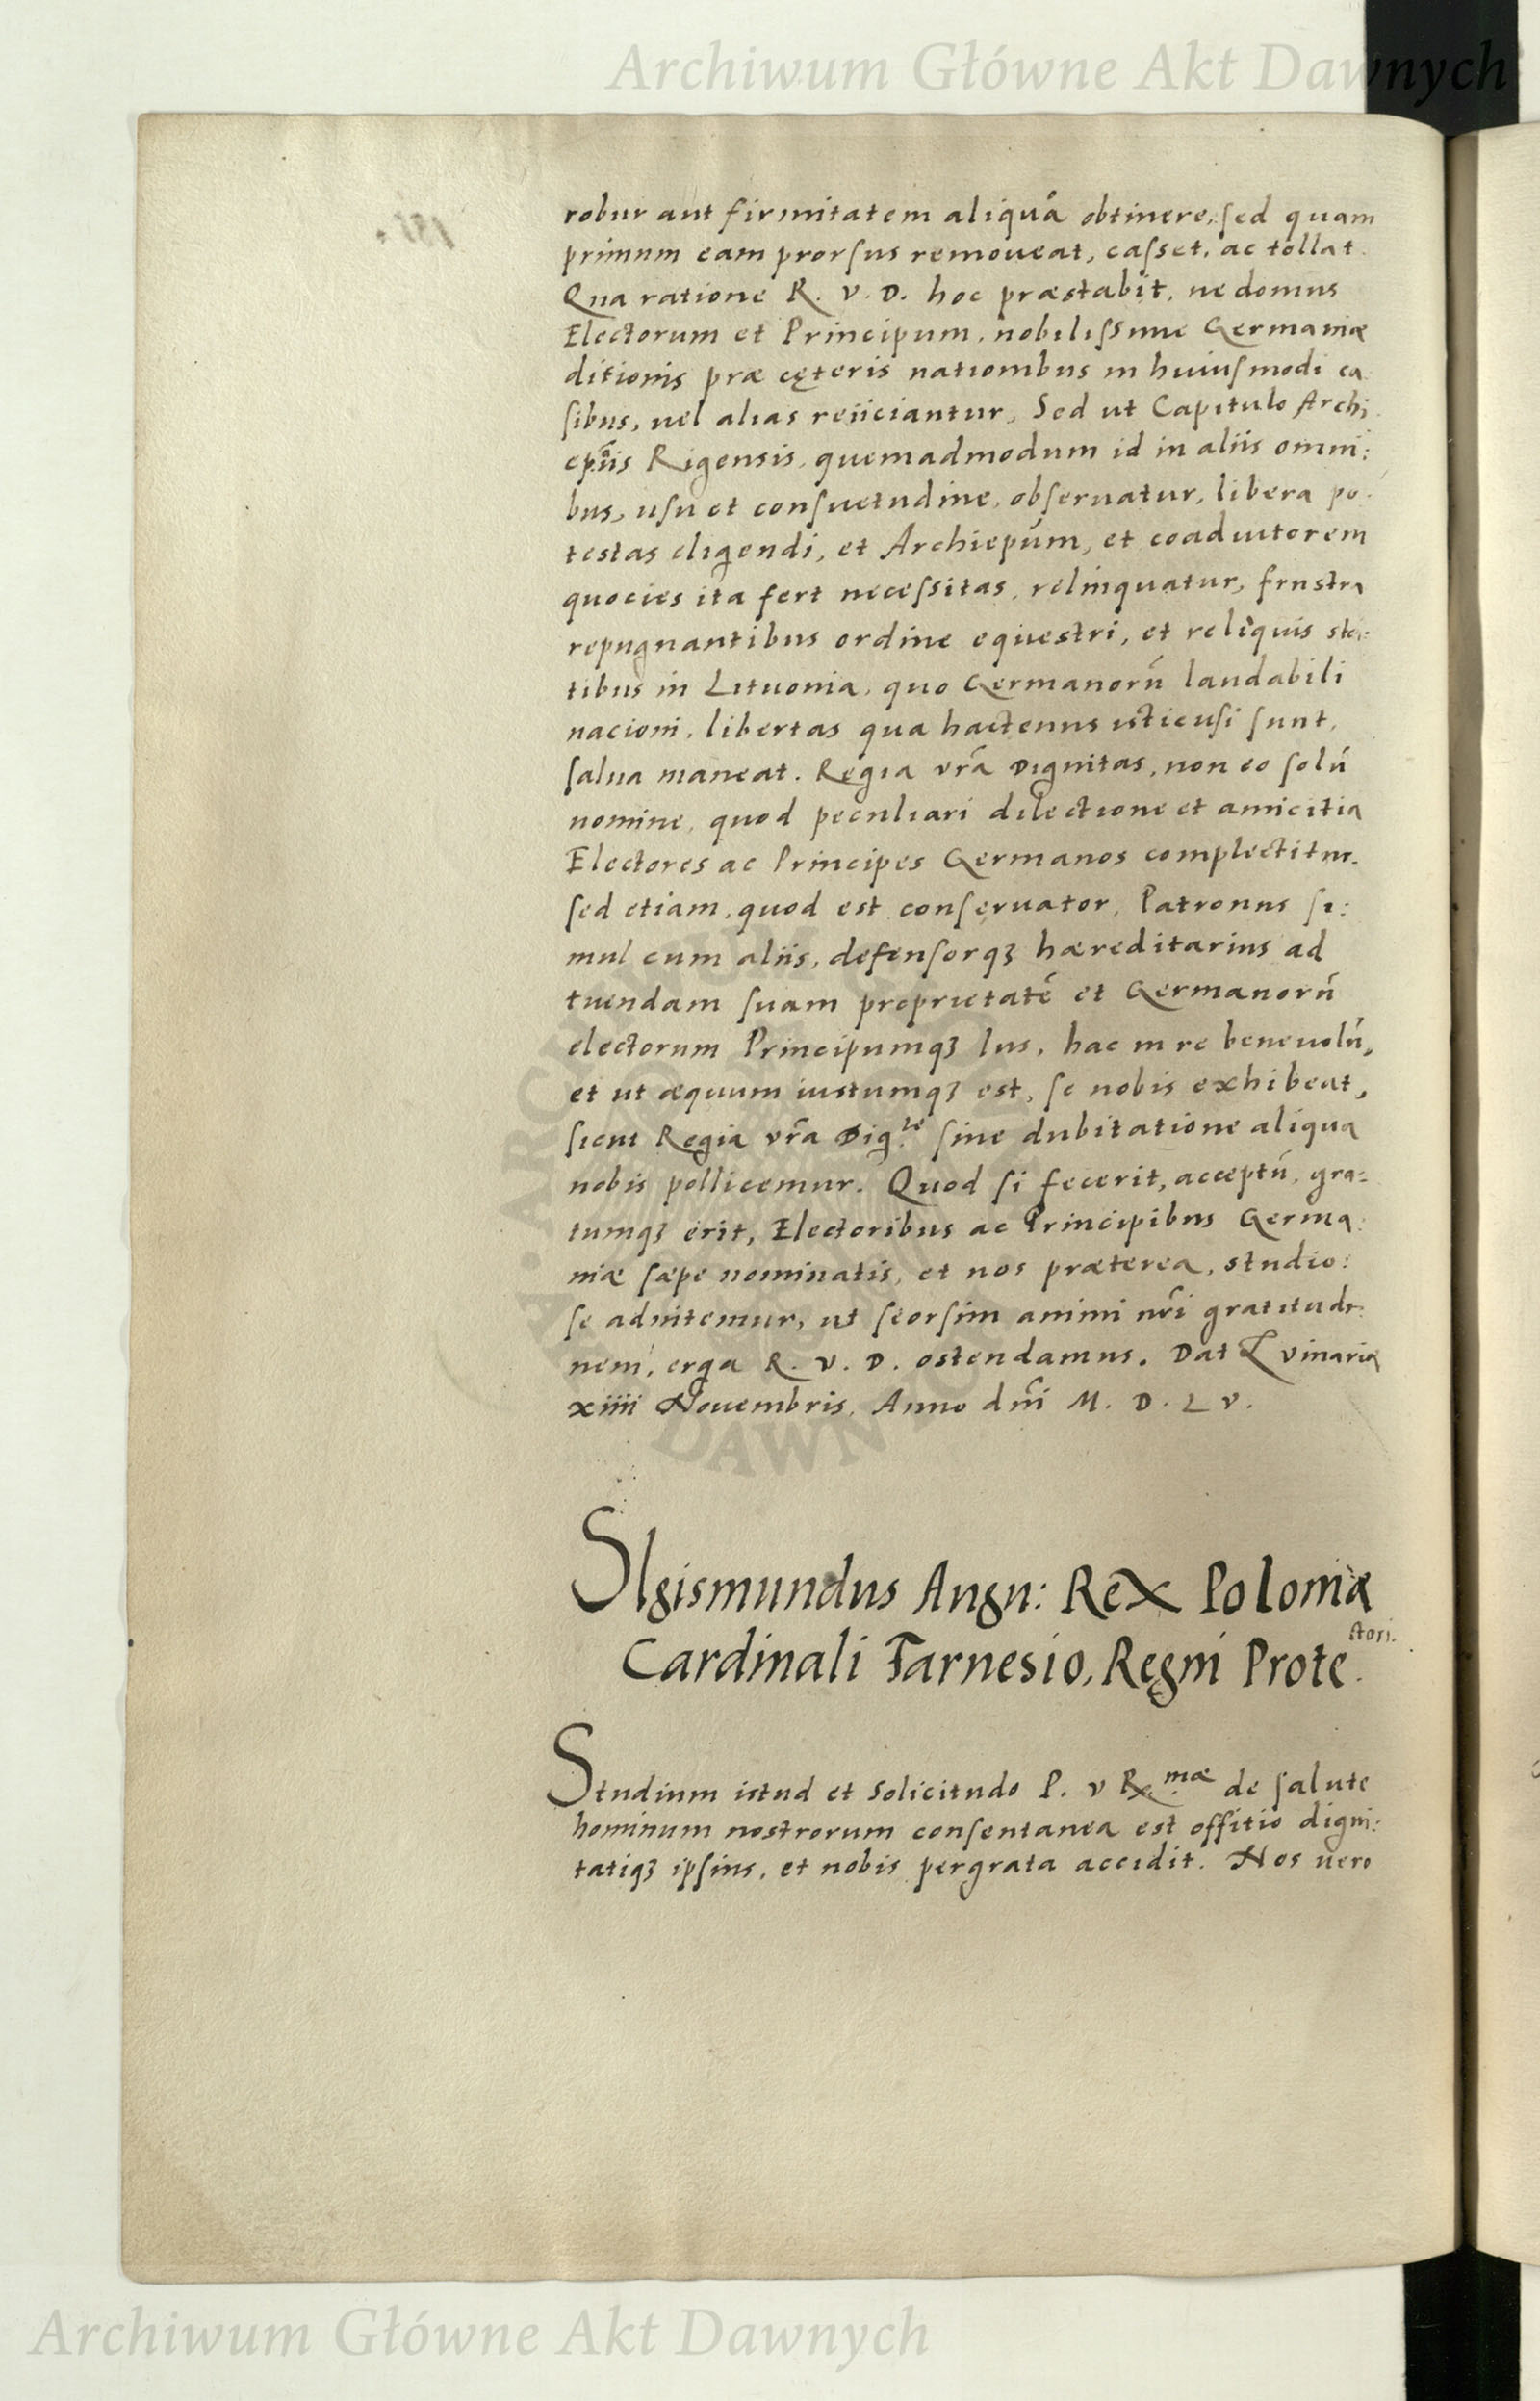 Archiwum Główne Akt Dawnych
robur aut firmitatem aliquā obtinere, sed quam
primum eam prorsus remoueat, casset, ac tollat.
Qua ratione R. V. D. hoc præstabit, ne domus
Electorum et Principum, nobilissime Germaniæ
ditionis præ cęteris nationibus in huiusmodi ca
sibus, uel alias reiiciantur, Sed ut Capitulo Archi
epīis Rigensis, quemadmodum id in aliis omni:
bus, usu et consuetudine, obseruatur, libera po:
testas eligendi, et Archiepūm, et coadiutorem
quocies ita fert necessitas, relinquatur, frustra
repugnantibus ordine equestri, et reliquis sta:
tibus in Lituonia, quo Germanorū laudabili
nacioni, libertas qua hactenus usi sunt,
salua maneat. Regia vrā Dignitas, non eo solū
nomine, quod peculiari dilectione et amicitia
Electores ac Principes Germanos complectitur.
sed etiam, quod est conseruator, Patronus si:
mul cum aliis, defensorqꝫ hæreditarius ad
tuendam suam proprietatē et Germanorū
electorum Principumqꝫ Ius, hac in re beneuolū,
et ut æquum iustumqꝫ est, se nobis exhibeat,
sicut Regia vrā Dig.te sine dubitatione aliqua
nobis pollicemur. Quod si fecerit, acceptū, gra=
tumqꝫ erit, Electoribus ac Principibus Germa:
niæ sæpe nominatis, et nos præterea, studio:
se adnitemur, ut seorsim animi nrī gratitudi:
nem, erga R. V. D. ostendamus. Dat Vinaria
xiiii Nouembris, Anno dnī M. D. L V.
SIgismundus Augu: Rex Poloniæ
Cardinali Farnesio, Regni Prote
ctori.
Studium istud et Solicitudo P. V Rx.mæ de salute
hominum nostrorum consentanea est offitio digni:
tatiqꝫ ipsius, et nobis pergrata accidit. Nos uero
Archiwum Główne Akt Dawnych